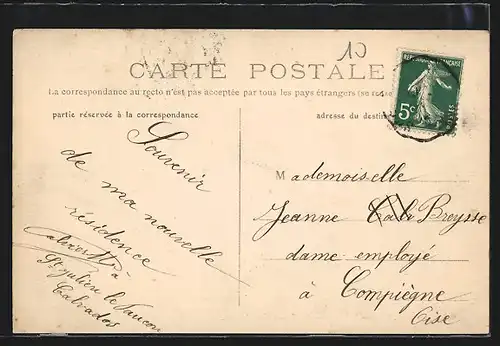 10
CARTE POSTALE
La correspondance au recto n'est pas acceptée par tous les pays étrangers (se
partie réservée à la correspondance
adresse du destin
REPUBLIQUE FRANÇAISE
5c
POSTES
Souvenir
de ma nouvelle
résidence
à
St Julien le Faucon
Calvados
Mademoiselle
Jeanne Breysse
dame employé
à Compiègne
Oise